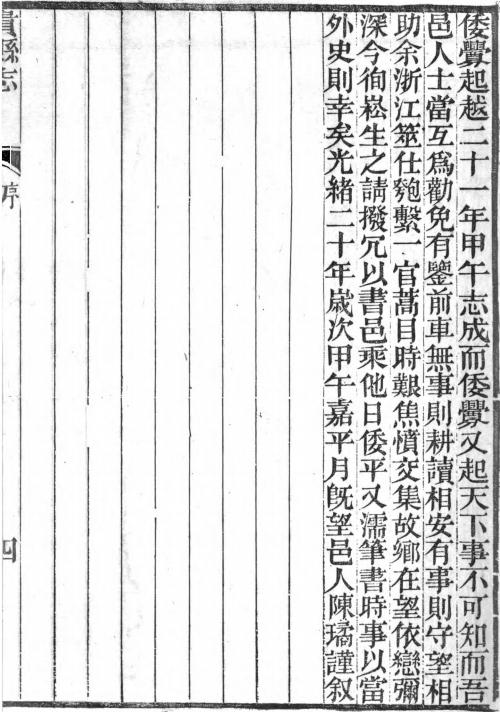 倭釁起越二十一年甲午志成而倭釁又起天下事不可知而吾
邑人士當互爲勸免有鑒前車無事則耕讀相安有事則守望相
助余浙江筮仕匏繫一官蒿目時艱焦憤交集故鄉在望依戀彌
深今徇崧生之請撥冗以書邑乘他日倭平又濡筆書時事以當
外史則幸矣光緒二十年歲次甲午嘉平月旣望邑人陳璚謹叙
貴縣志
序
四